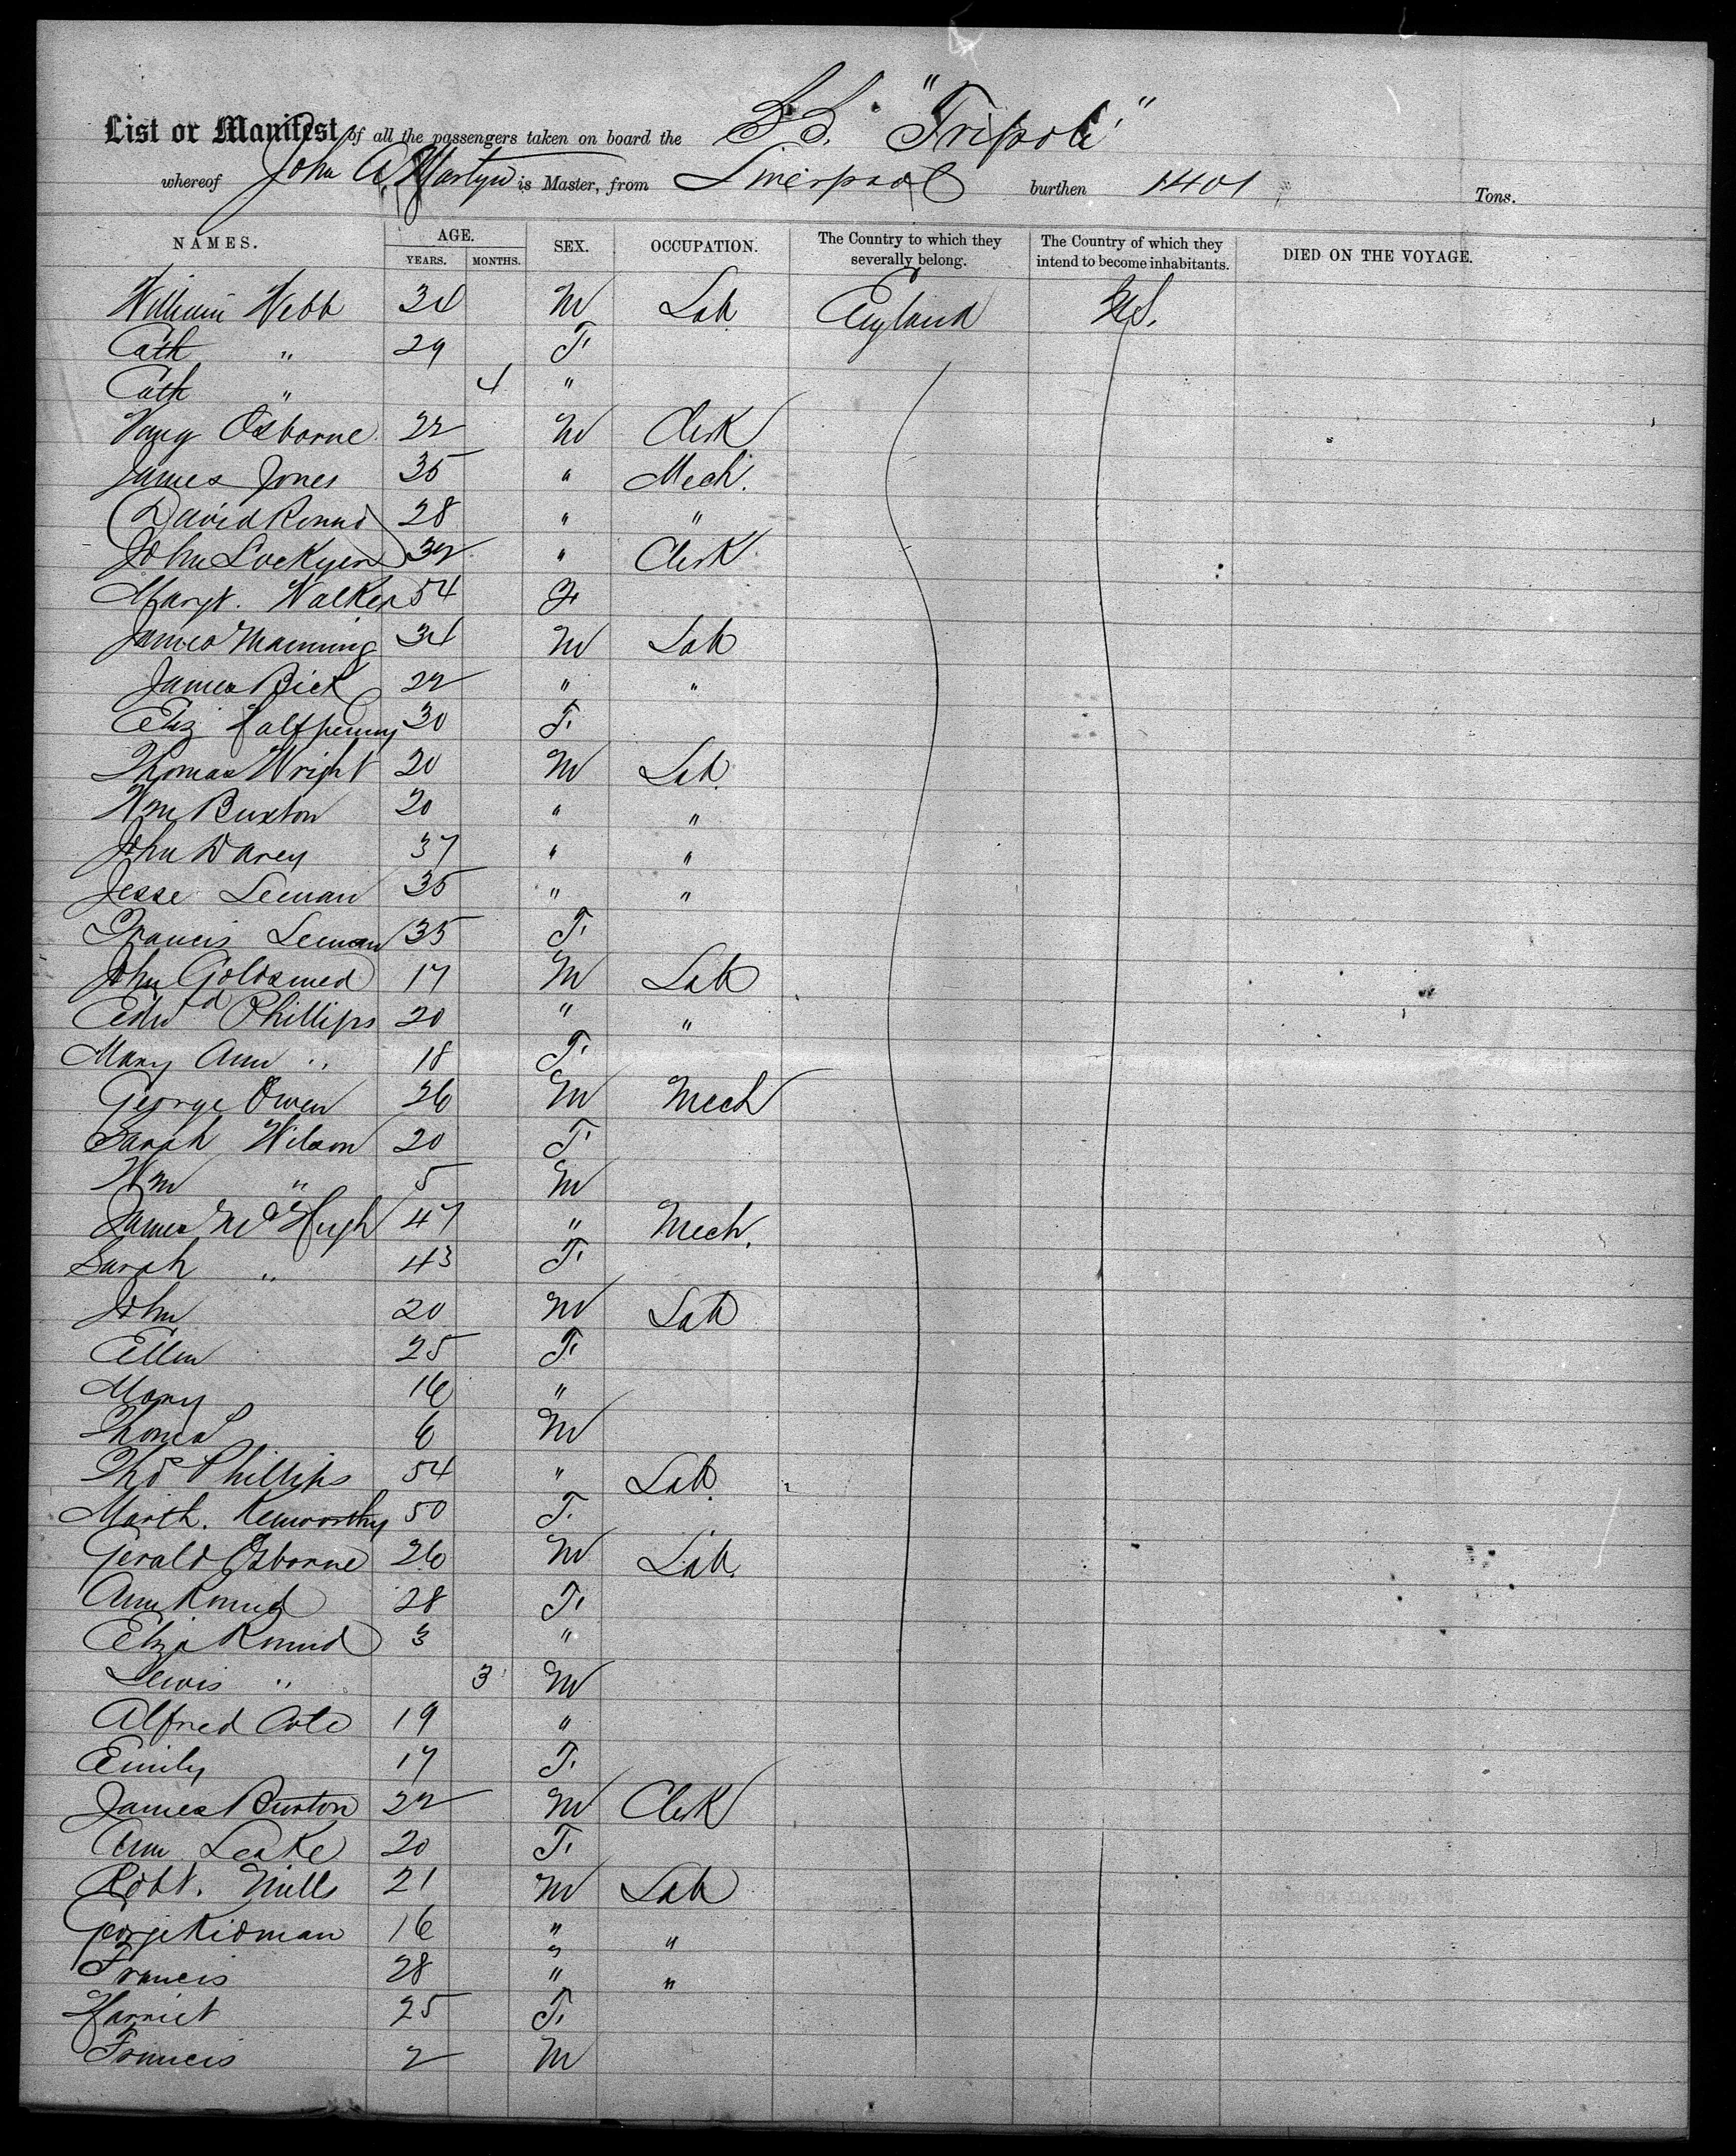 List or Manifest of all the passengers taken on board the S.S. "Tripoli"
whereof John A. Martyn is Master, from Liverpool burthen 1401 Tons.
NAMES. AGE. YEARS. MONTHS. SEX. OCCUPATION. The Country to which they severally belong. The Country of which they intend to become inhabitants. DIED ON THE VOYAGE.
William Webb 34 M Lab England U.S.
Cath " 29 F.
Cath " 4 "
Osborne 22 M Clerk
James Jones 35 " Mech.
David 28 " "
John Lockyer 32 " Clerk
Margt. Walker 54 F
James Manning 34 M Lab
James Bick 22 " "
Eliz Halfpenny 30 F.
Thomas Wright 20 M Lab.
Wm Buxton 20 " "
John Darey 37 " "
Jesse Leman 35 " "
Francis Leman 35 F.
John Goldsmed 17 M Lab
Edwd Phillips 20 " "
Mary Ann " 18 F.
George Owen 26 M Mech
Sarah Wilson 20 F.
Wm " 5 M
James McHugh 47 " Mech.
Sarah " 43 F.
John 20 M Lab
Ellen 25 F.
Mary 16 "
Thomas 6 M
Thos Phillips 54 " Lab.
Marth. Kenworthy 50 F.
Gerald Osborne 26 M Lab.
Ann 28 F.
Eliza 3 "
Lewis " 3 M
Alfred Cole 19 "
Emily 17 F.
James Burton 22 M Clerk
Ann Leake 20 F.
Robt. Mills 21 M Lab
George Kidman 16 " "
Francis 28 " "
Harriet 25 F.
Francis 2 M